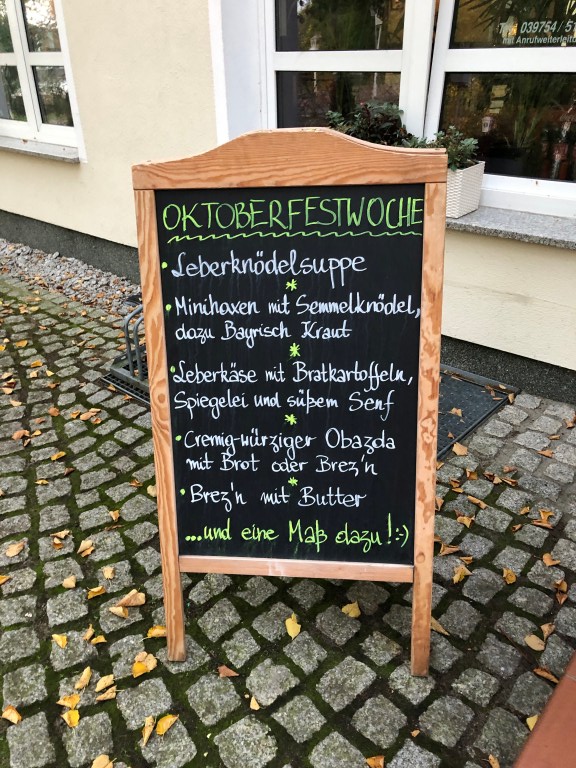 Tel. 039754 / 51
mit Anrufweiterleitu
OKTOBERFESTWOCHE
• Leberknödelsuppe
*
• Minihaxen mit Semmelknödel,
dazu Bayrisch Kraut
*
• Leberkäse mit Bratkartoffeln,
Spiegelei und süßem Senf
*
• Cremig-würziger Obazda
mit Brot oder Brez'n
*
• Brez'n mit Butter
...und eine Maß dazu! :-)